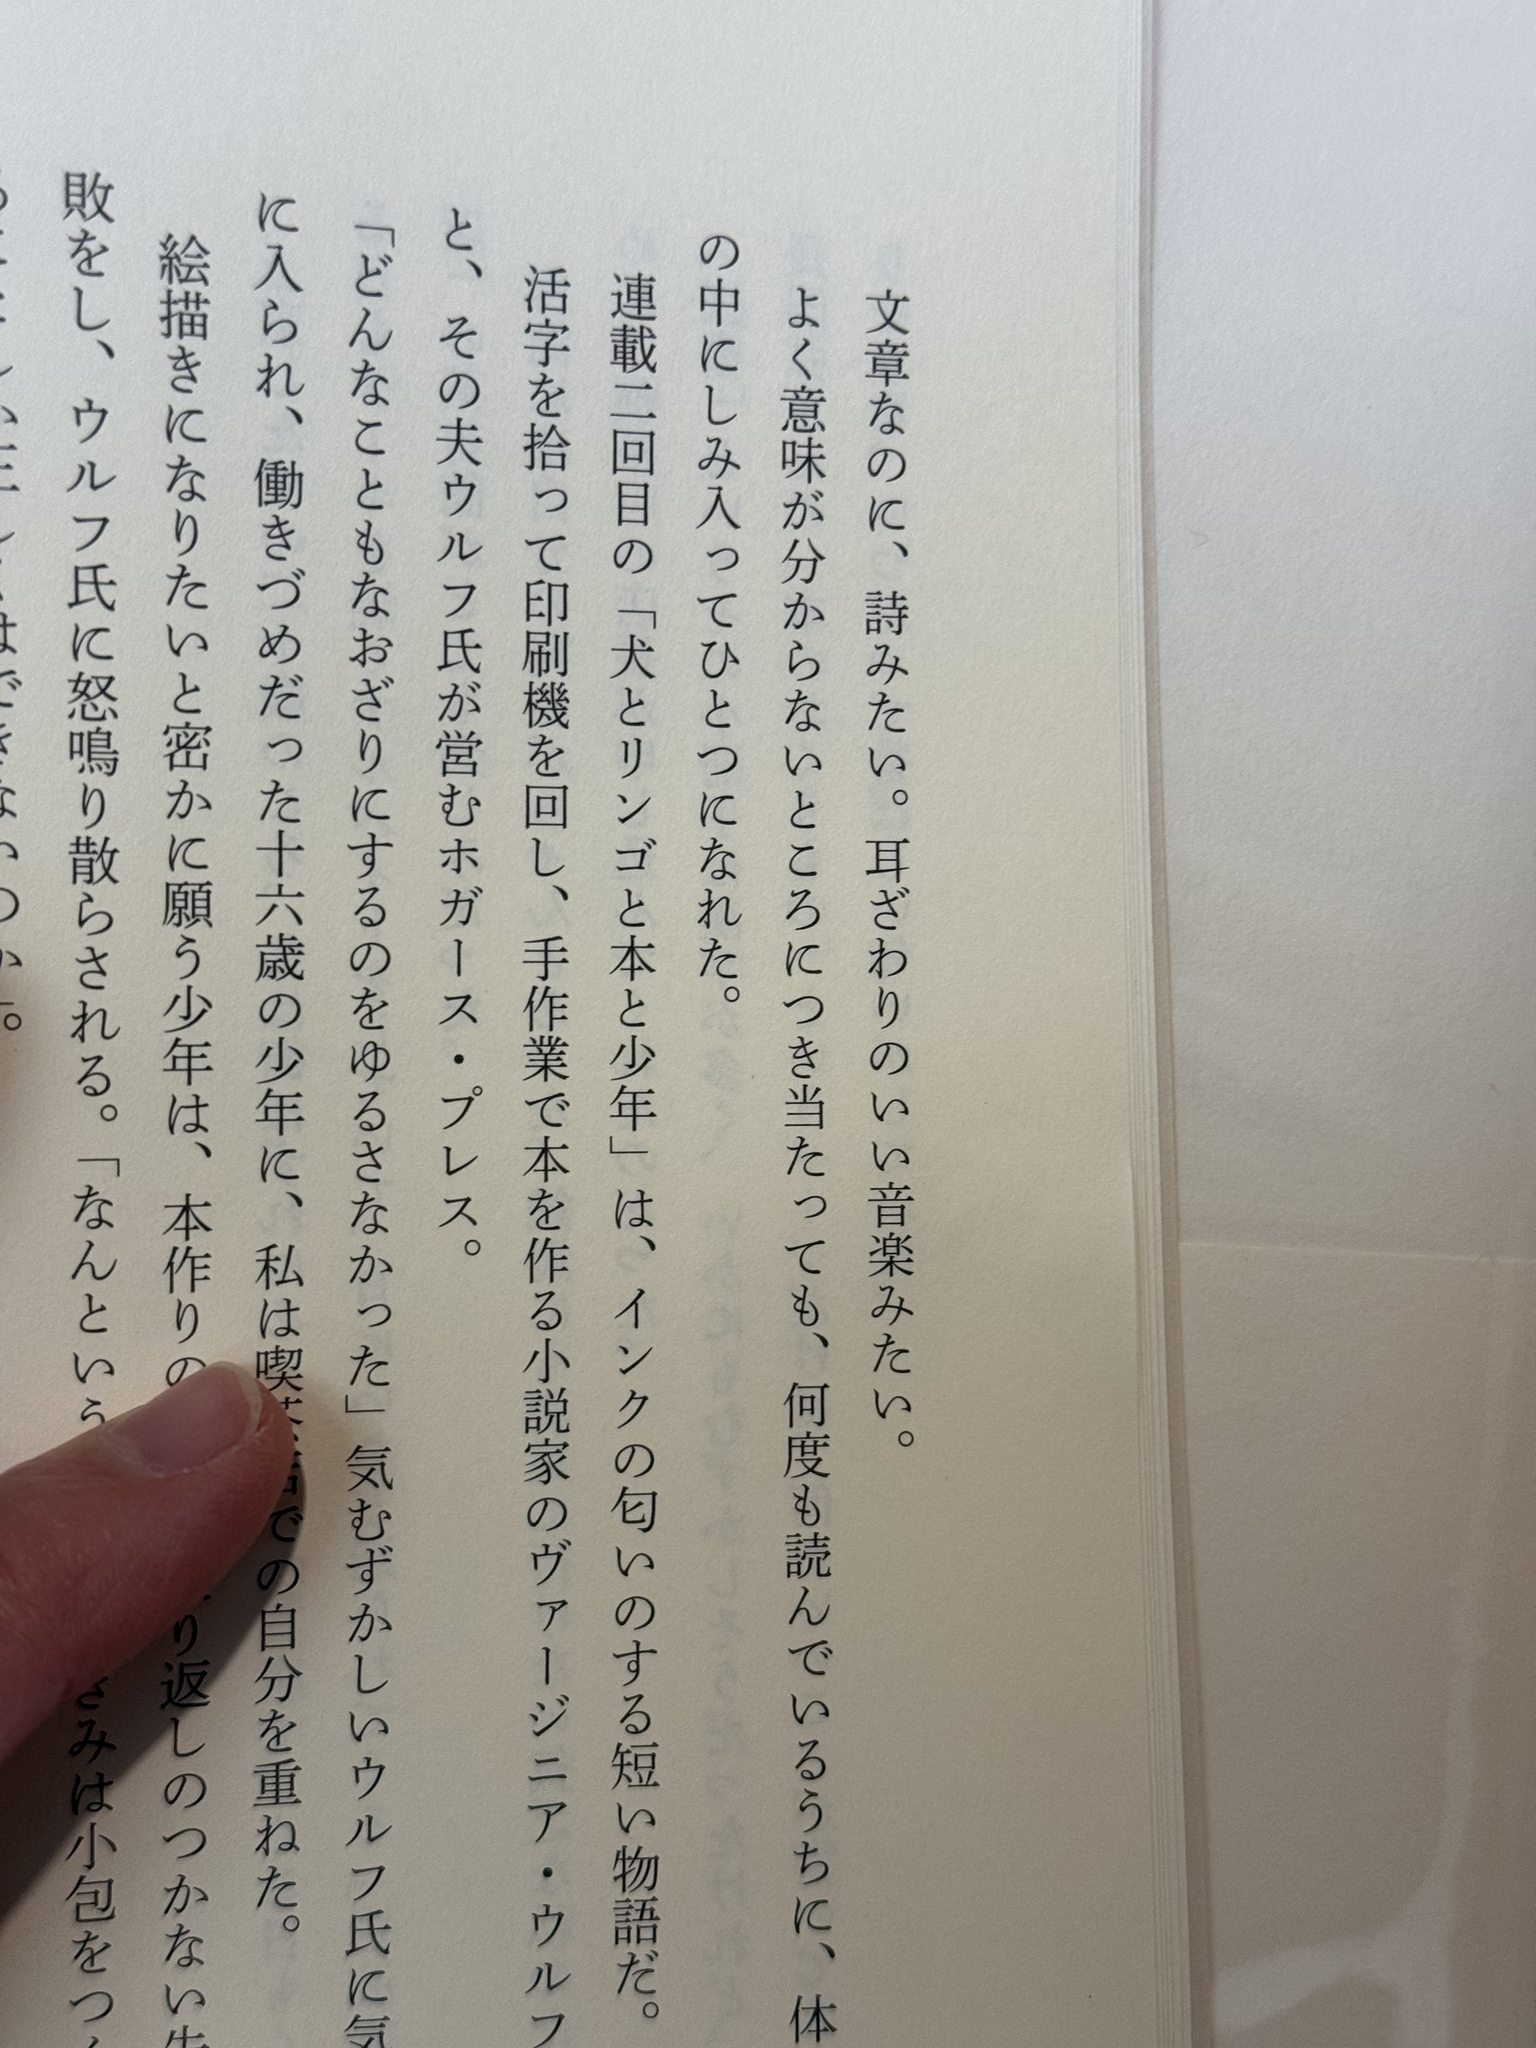 文章なのに、詩みたい。耳ざわりのいい音楽みたい。
よく意味が分からないところにつき当たっても、何度も読んでいるうちに、体
の中にしみ入ってひとつになれた。
連載二回目の「犬とリンゴと本と少年」は、インクの匂いのする短い物語だ。
活字を拾って印刷機を回し、手作業で本を作る小説家のヴァージニア・ウルフ
と、その夫ウルフ氏が営むホガース・プレス。
「どんなこともなおざりにするのをゆるさなかった」気むずかしいウルフ氏に気
に入られ、働きづめだった十六歳の少年に、私は喫茶店での自分を重ねた。
絵描きになりたいと密かに願う少年は、本作りの り返しのつかない失
敗をし、ウルフ氏に怒鳴り散らされる。「なんという きみは小包をつ